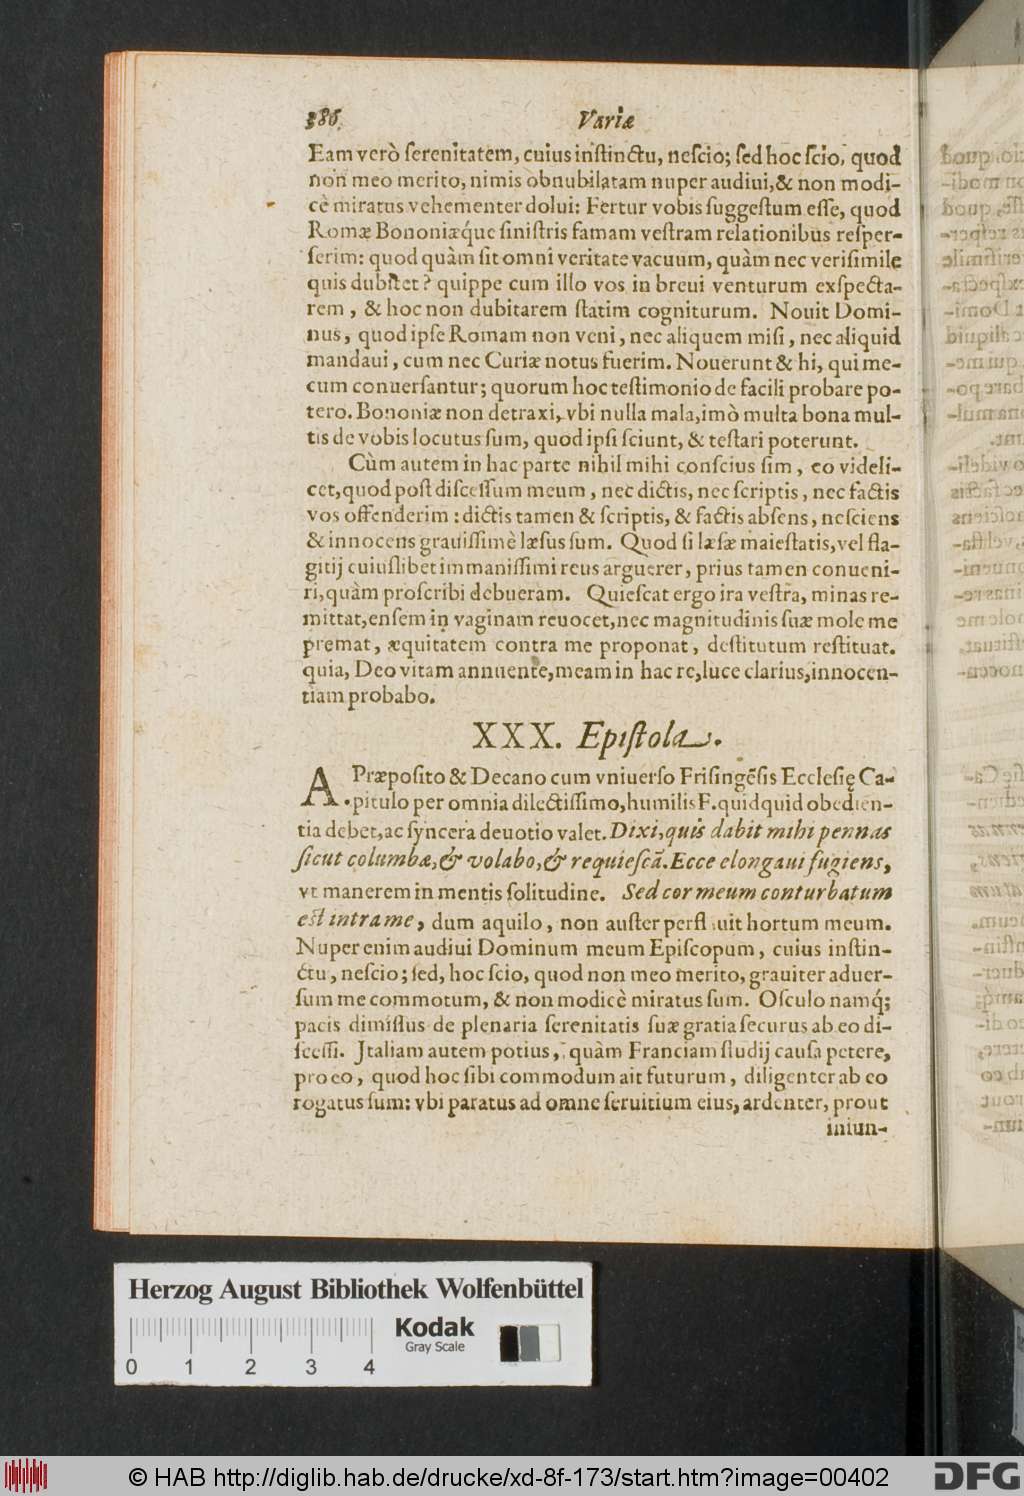 386 Variæ
Eam verò ſerenitatem, cuius inſtinctu, neſcio; ſed hoc ſcio, quod
non meo merito, nimis obnubilatam nuper audiui, & non modi-
cè miratus vehementer dolui: Fertur vobis ſuggeſtum eſſe, quod
Romæ Bononiæqué ſiniſtris famam veſtram relationibus reſper-
ſerim: quod quàm ſit omni veritate vacuum, quàm nec veriſimile
quis dubitet? quippe cum illo vos in breui venturum exſpecta-
rem, & hoc non dubitarem ſtatim cogniturum. Nouit Domi-
nus, quod ipſe Romam non veni, nec aliquem miſi, nec aliquid
mandaui, cum nec Curiæ notus fuerim. Nouerunt & hi, qui me-
cum conuerſantur; quorum hoc teſtimonio de facili probare po-
tero. Bononiæ non detraxi, vbi nulla mala, imò multa bona mul-
tis de vobis locutus ſum, quod ipſi ſciunt, & teſtari poterunt.
Cùm autem in hac parte nihil mihi conſcius ſim, eo videli-
cet, quod poſt diſceſſum meum, nec dictis, nec ſcriptis, nec factis
vos offenderim: dictis tamen & ſcriptis, & factis abſens, neſciens
& innocens grauiſſimè læſus ſum. Quod ſi læſæ maieſtatis, vel fla-
gitij cuiuſlibet immaniſſimi reus arguerer, prius tamen conueni-
ri, quàm proſcribi debueram. Quieſcat ergo ira veſtra, minas re-
mittat, enſem in vaginam reuocet, nec magnitudinis ſuæ mole me
premat, æquitatem contra me proponat, deſtitutum reſtituat.
quia, Deo vitam annuente, meam in hac re, luce clarius, innocen-
tiam probabo.
XXX. Epiſtola.
A Præpoſito & Decano cum vniuerſo Friſingẽſis Eccleſię Ca-
. pitulo per omnia dilectiſſimo, humilis F. quidquid obedien-
tia debet, ac ſyncera deuotio valet. Dixi, quis dabit mihi pennas
ſicut columbæ, & volabo, & requieſcã. Ecce elongaui fugiens,
vt manerem in mentis ſolitudine. Sed cor meum conturbatum
eſt intra me, dum aquilo, non auſter perfluit hortum meum.
Nuper enim audiui Dominum meum Epiſcopum, cuius inſtin-
ctu, neſcio; ſed, hoc ſcio, quod non meo merito, grauiter aduer-
ſum me commotum, & non modicè miratus ſum. Oſculo namq́;
pacis dimiſſus de plenaria ſerenitatis ſuæ gratia ſecurus ab eo di-
ſceſſi. Jtaliam autem potius, quàm Franciam ſtudij cauſa petere,
pro eo, quod hoc ſibi commodum ait futurum, diligenter ab eo
rogatus ſum: vbi paratus ad omne ſeruitium eius, ardenter, prout
iniun-
Herzog August Bibliothek Wolfenbüttel
Kodak
Gray Scale
0 1 2 3 4
© HAB http://diglib.hab.de/drucke/xd-8f-173/start.htm?image=00402
DFG